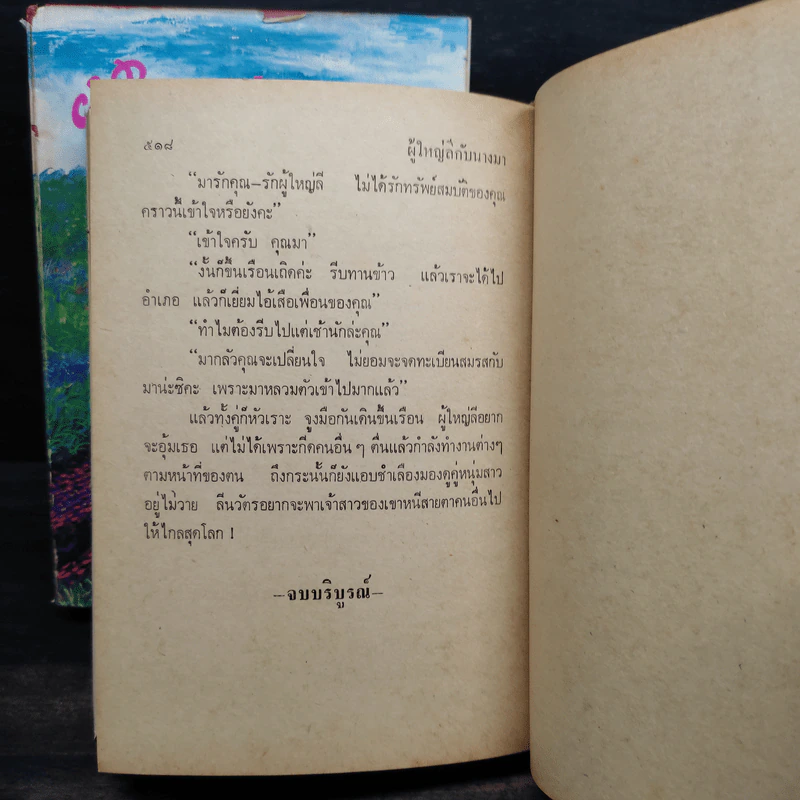 ๕๑๘
ผู้ใหญ่ลีกับนางมา
“มารักคุณ–รักผู้ใหญ่ลี ไม่ได้รักทรัพย์สมบัติของคุณ
คราวนี้เข้าใจหรือยังคะ”
“เข้าใจครับ คุณมา”
“งั้นก็ขึ้นเรือนเถิดค่ะ รีบทานข้าว แล้วเราจะได้ไป
อำเภอ แล้วก็เยี่ยมไอ้เสือเพื่อนของคุณ”
“ทำไมต้องรีบไปแต่เช้านักล่ะคุณ”
“มากลัวคุณจะเปลี่ยนใจ ไม่ยอมจะจดทะเบียนสมรสกับ
มาน่ะซิคะ เพราะมาหลวมตัวเข้าไปมากแล้ว”
แล้วทั้งคู่ก็หัวเราะ จูงมือกันเดินขึ้นเรือน ผู้ใหญ่ลีอยาก
จะอุ้มเธอ แต่ไม่ได้เพราะกีดคนอื่น ๆ ตื่นแล้วกำลังทำงานต่างๆ
ตามหน้าที่ของตน ถึงกระนั้นก็ยังแอบชำเลืองมองดูคู่หนุ่มสาว
อยู่ไม่วาย ลีนวัตรอยากจะพาเจ้าสาวของเขาหนีสายตาคนอื่นไป
ให้ไกลสุดโลก !
–จบบริบูรณ์–